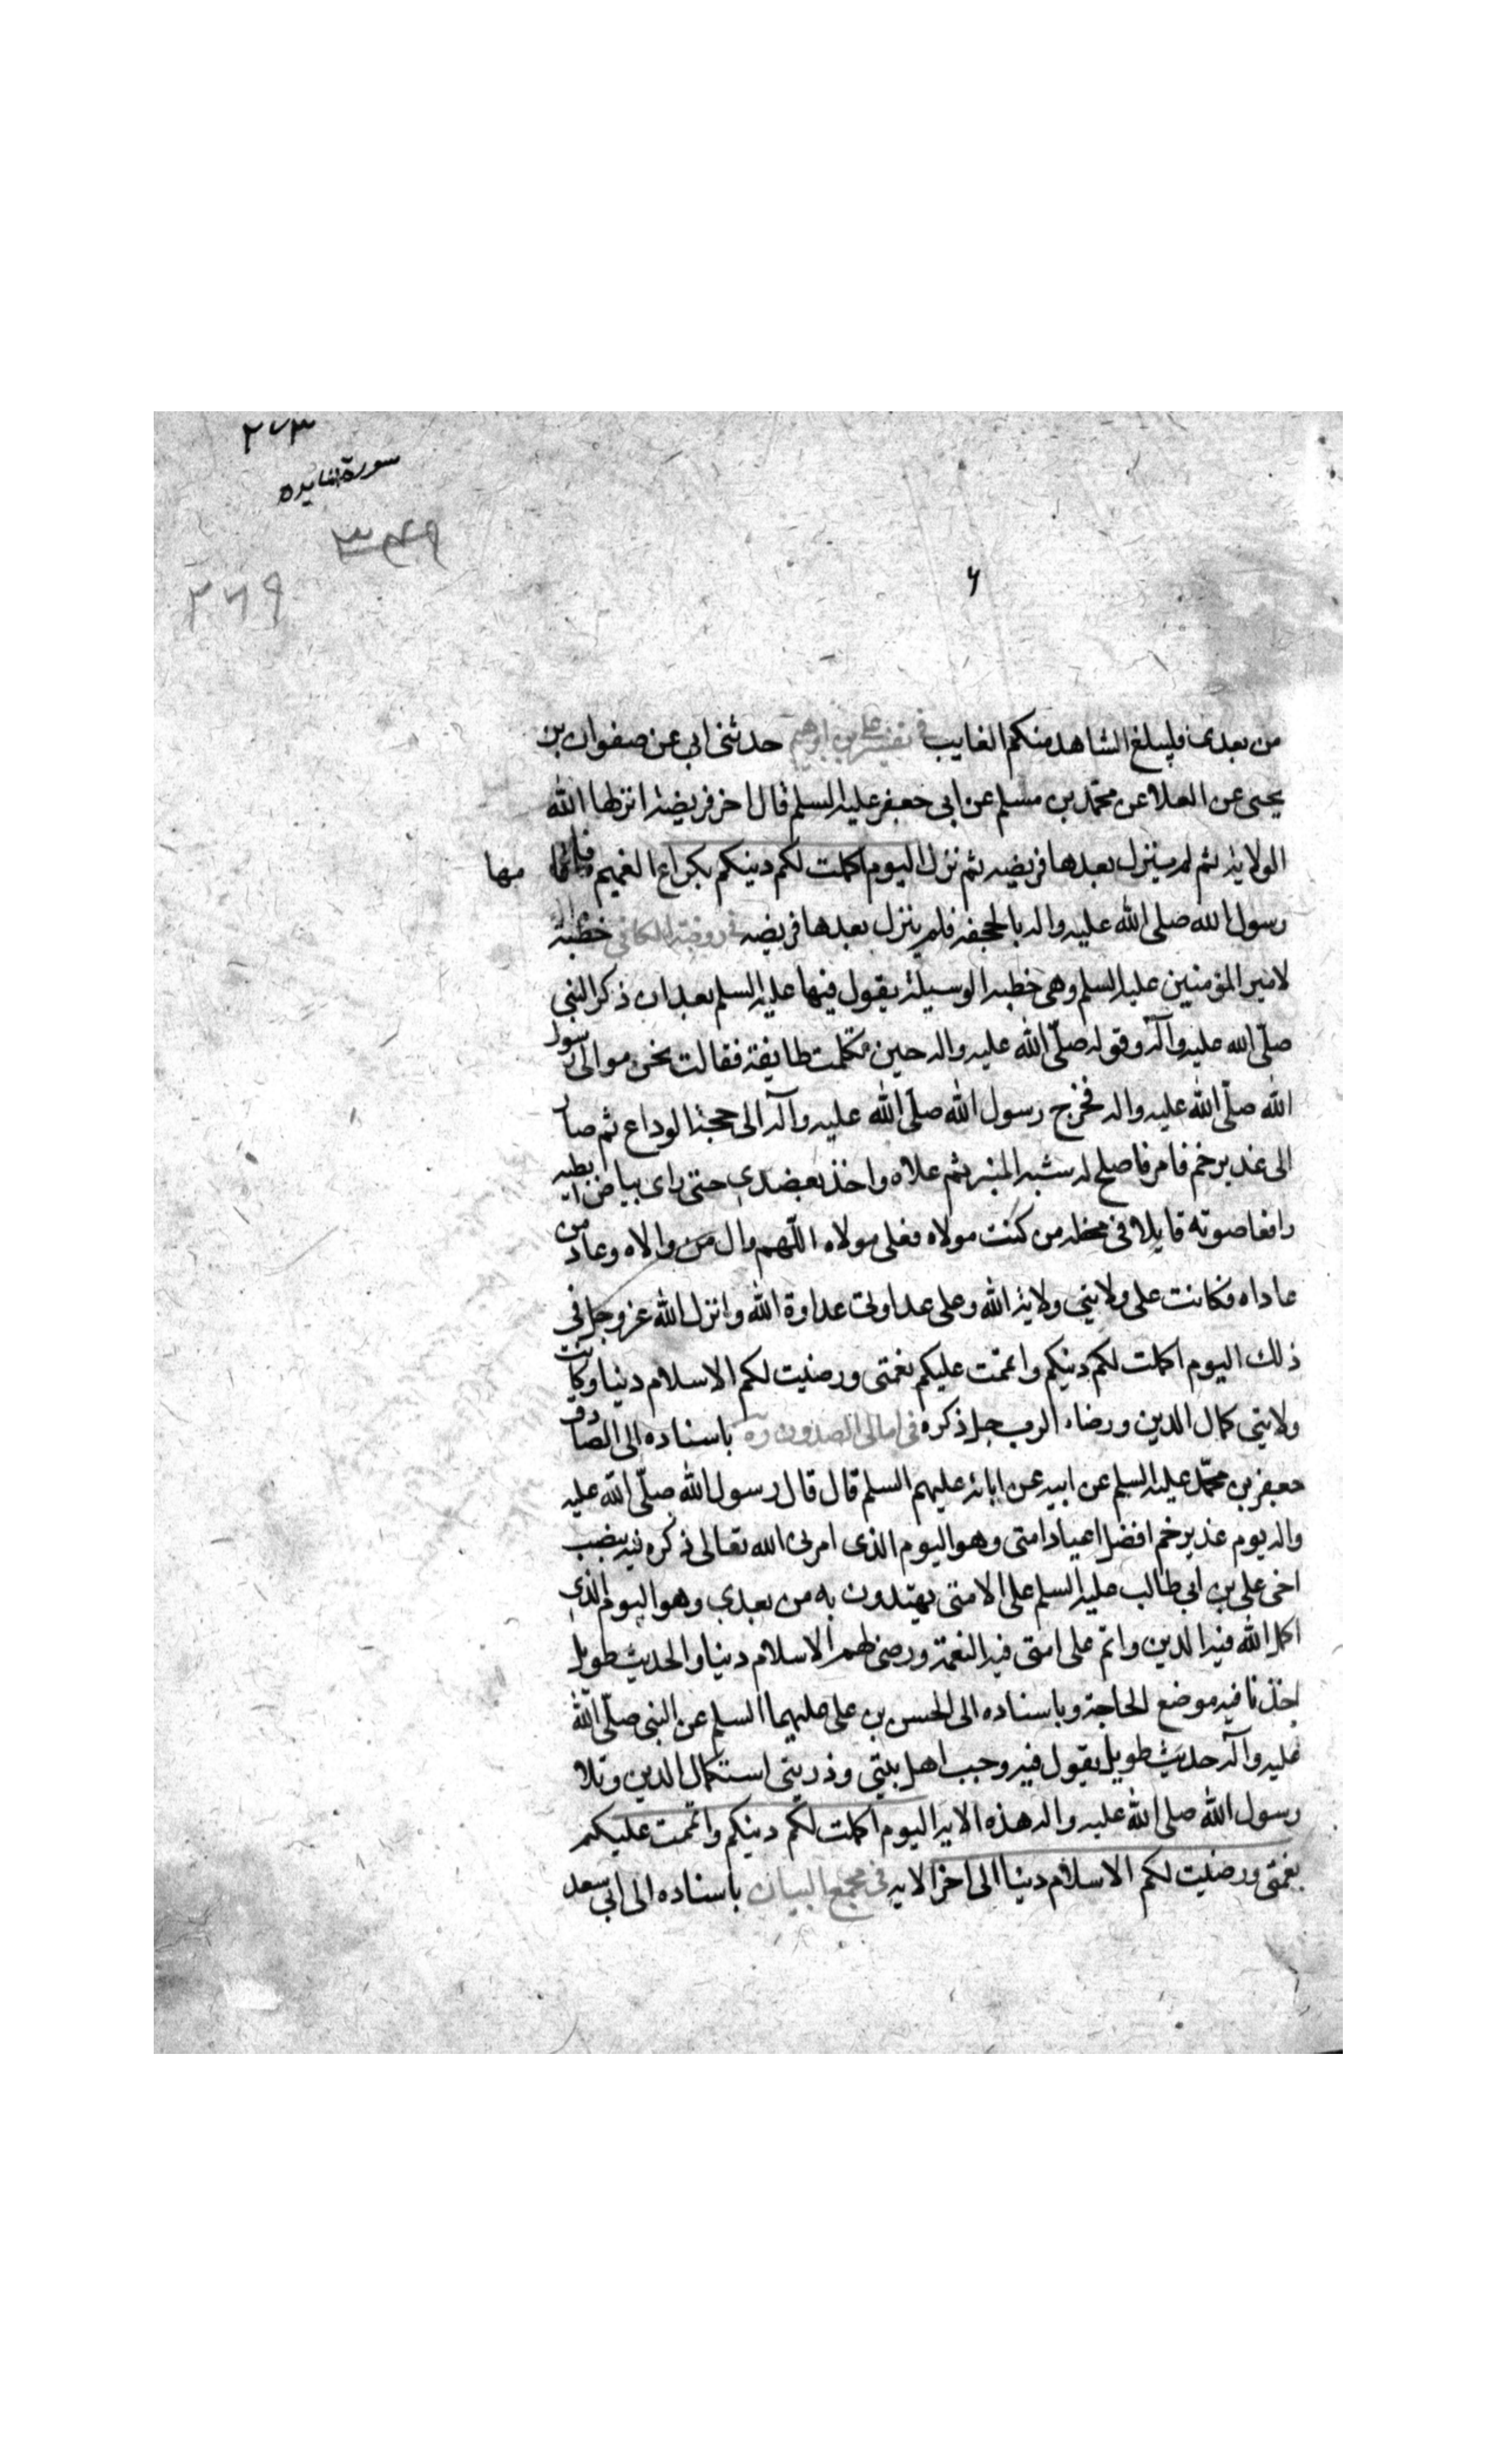 ٢٧٣
سورة المايده
٣٤٩
٢٦٩
٦
من بعدى فليبلغ الشاهد منكم الغايب فى تفسير على بن ابراهيم حدثنى ابى عن صفوان بن
يحيى عن العلا عن محمد بن مسلم عن ابى جعفر عليه السلم قال اخر فريضة انزلها الله
الولاية ثم لم ينزل بعدها فريضه ثم نزل اليوم اكملت لكم دينكم بكراع الغميم فاقامها
رسول الله صلى الله عليه واله بالجحفه فلم ينزل بعدها فريضه فى روضة الكافى خطبة
لامير المؤمنين عليه السلم وهى خطبه الوسيلة يقول فيها عليه السلم بعد ان ذكر النبى
صلّى الله عليه وآله وقوله صلّى الله عليه واله حين تكلمت طايفة فقالت نحن موالى رسول
الله صلّى الله عليه واله فخرج رسول الله صلّى الله عليه وآله الى حجة الوداع ثم صار
الى غدير خم فامر فاصلح له شبه المنبر ثم علاه واخذ بعضدى حتى راى بياض ابطيه
رافعا صوته قايلا فى محفله من كنت مولاه فعلى مولاه اللّهم وال من والاه وعاد من
عاداه فكانت على ولايتى ولاية الله وعلى عداوتى عداوة الله وانزل الله عز وجل فى
ذلك اليوم اكملت لكم دينكم واتممت عليكم نعمتى ورضيت لكم الاسلام دينا وكانت
ولايتى كمال الدين ورضاء الرب جل ذكره فى امالى الصدوق ره باسناده الى الصادق
جعفر بن محمّد عليه السلم عن ابيه عن ابائه عليهم السلم قال قال رسول الله صلّى الله عليه
واله يوم غدير خم افضل اعياد امتى وهو اليوم الذى امرنى الله تعالى ذكره فيه بنصب
اخى على بن ابى طالب عليه السلم علما لامتى يهتدون به من بعدى وهو اليوم الذى
اكمل الله فيه الدين واتم على امتى فيه النعمة ورضى لهم الاسلام دينا والحديث طويل
اخذنا فيه موضع الحاجة وباسناده الى الحسن بن على عليهما السلم عن النبى صلّى الله
عليه وآله حديث طويل يقول فيه وحب اهل بيتى وذريتى استكمال الدين وتلا
رسول الله صلى الله عليه واله هذه الايه اليوم اكملت لكم دينكم واتممت عليكم
نعمتى ورضيت لكم الاسلام دينا الى اخر الايه فى مجمع البيان باسناده الى ابى سعد